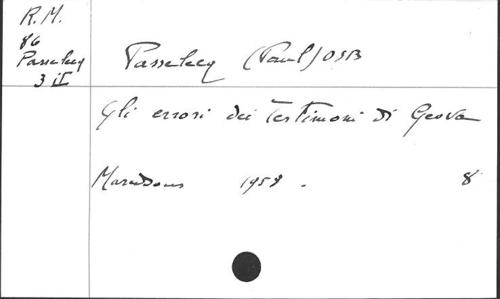 R.M.
86
Passelecq
3 II
Passelecq (Paul) OSB
Gli errori dei Testimoni di Geova
Maredsous 1958. 8